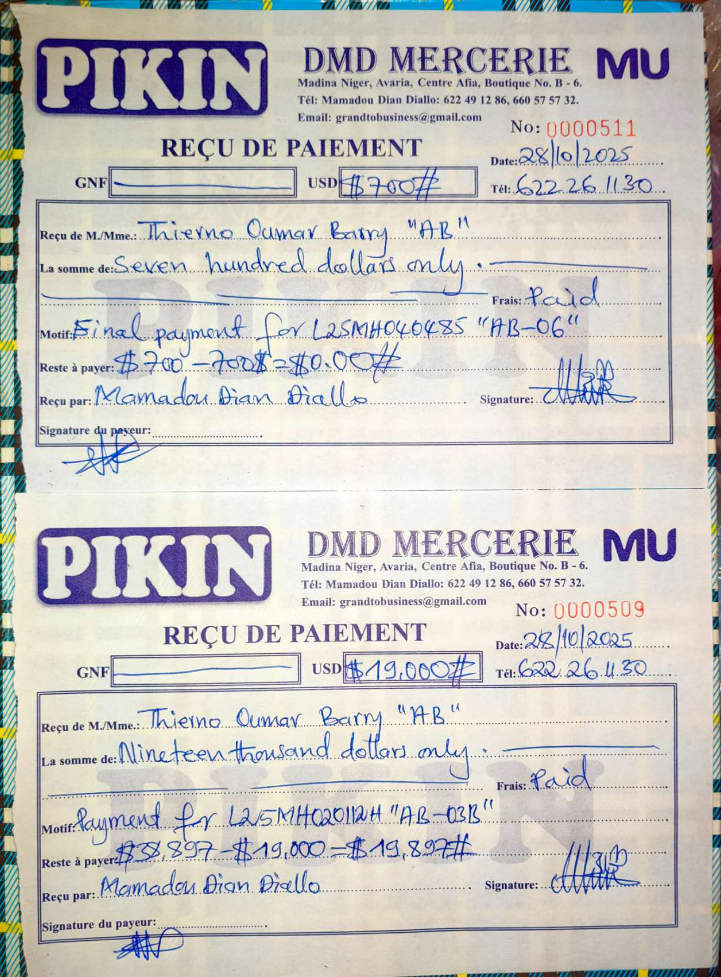 PIKIN
DMD MERCERIE MU
Madina Niger, Avaria, Centre Afia, Boutique No. B - 6.
Tél: Mamadou Dian Diallo: 622 49 12 86, 660 57 57 32.
Email: grandtobusiness@gmail.com
No: 0000511
REÇU DE PAIEMENT
Date: 28/10/2025
GNF USD $700#
Tél: 622 26 11 30
Reçu de M./Mme.: Thierno Oumar Barry "AB"
La somme de: Seven hundred dollars only.
Frais: Paid
Motif: Final payment for L25MH040485 "AB-06"
Reste à payer: $700 - 700$ = $0.00#
Reçu par: Mamadou Dian Diallo Signature:
Signature du payeur:
PIKIN
PIKIN
DMD MERCERIE MU
Madina Niger, Avaria, Centre Afia, Boutique No. B - 6.
Tél: Mamadou Dian Diallo: 622 49 12 86, 660 57 57 32.
Email: grandtobusiness@gmail.com
No: 0000509
REÇU DE PAIEMENT
Date: 28/10/2025
GNF USD $19,000#
Tél: 622 26 11 30
Reçu de M./Mme.: Thierno Oumar Barry "AB"
La somme de: Nineteen thousand dollars only.
Frais: Paid
Motif: Payment for L25MH020112H "AB-03B"
Reste à payer: $38,897 - $19,000 = $19,897#
Reçu par: Mamadou Dian Diallo Signature:
Signature du payeur:
PIKIN